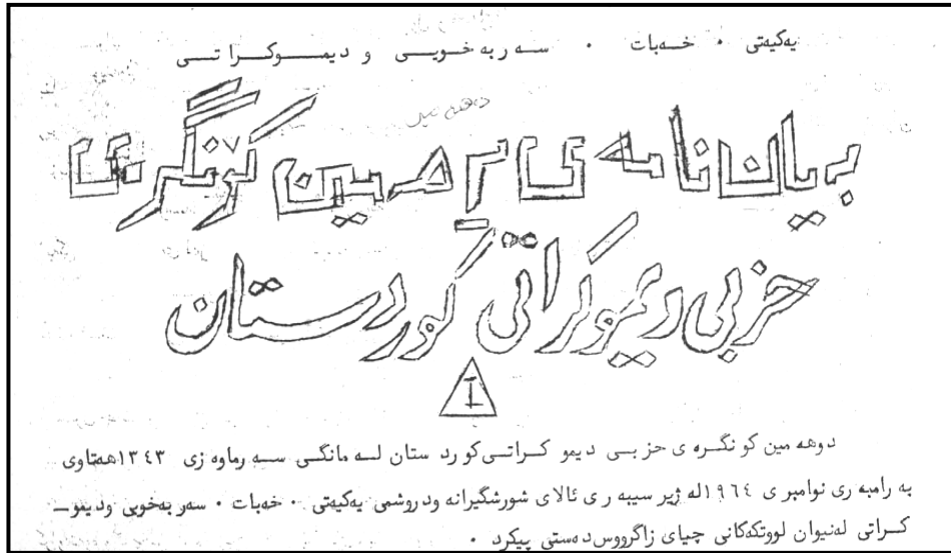 یەکیەتی ・ خەبات ・ سەربەخویی و دیموکراتی
دهه مین
بەیان نامه ی ٢ هەمین کونگرەی
حزبی دیموکراتی کوردستان
دوهەمین کونگرەی حزبی دیموکراتی کوردستان لە مانگی سەرماوەزی ١٣٤٣ هەتاوی
بەرامبەری نوامبری ١٩٦٤ لە ژیر سیبەری ئالای شورشگیرانە ودروشمی یەکیەتی ・ خەبات ・ سەربەخویی ودیمو_
کراتی لەنیوان لووتکەکانی چیای زاگرووس دەستی پیکرد ・